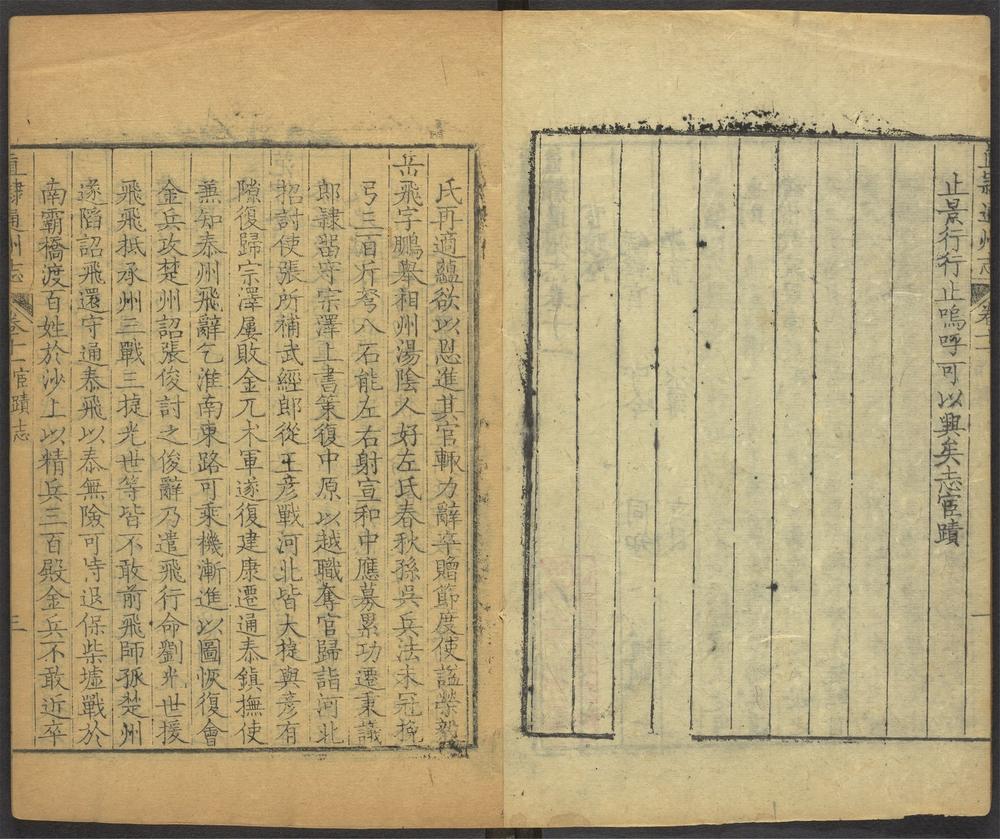 直隷通州志
卷十一
一
止景行行止嗚呼可以興矣志宦蹟
氏再適蘊欲以恩進其官輒力辭卒贈節度使謚榮毅
岳飛字鵬舉相州湯陰人好左氏春秋孫吳兵法未冠挽
弓三百斤弩八石能左右射宣和中應募累功遷秉議
郎隷留守宗澤上書策復中原以越職奪官歸詣河北
招討使張所補武經郎從王彦戰河北皆大捷與彦有
隙復歸宗澤屢敗金兀朮軍遂復建康遷通泰鎮撫使
兼知泰州飛辭乞淮南東路可乘機漸進以圖恢復會
金兵攻楚州詔張俊討之俊辭乃遣飛行命劉光世援
飛飛抵承州三戰三捷光世等皆不敢前飛師孤楚州
遂陷詔飛還守通泰飛以泰無險可恃退保柴墟戰於
南霸橋渡百姓於沙上以精兵三百殿金兵不敢近卒
直隷通州志
卷十一宦蹟志
三